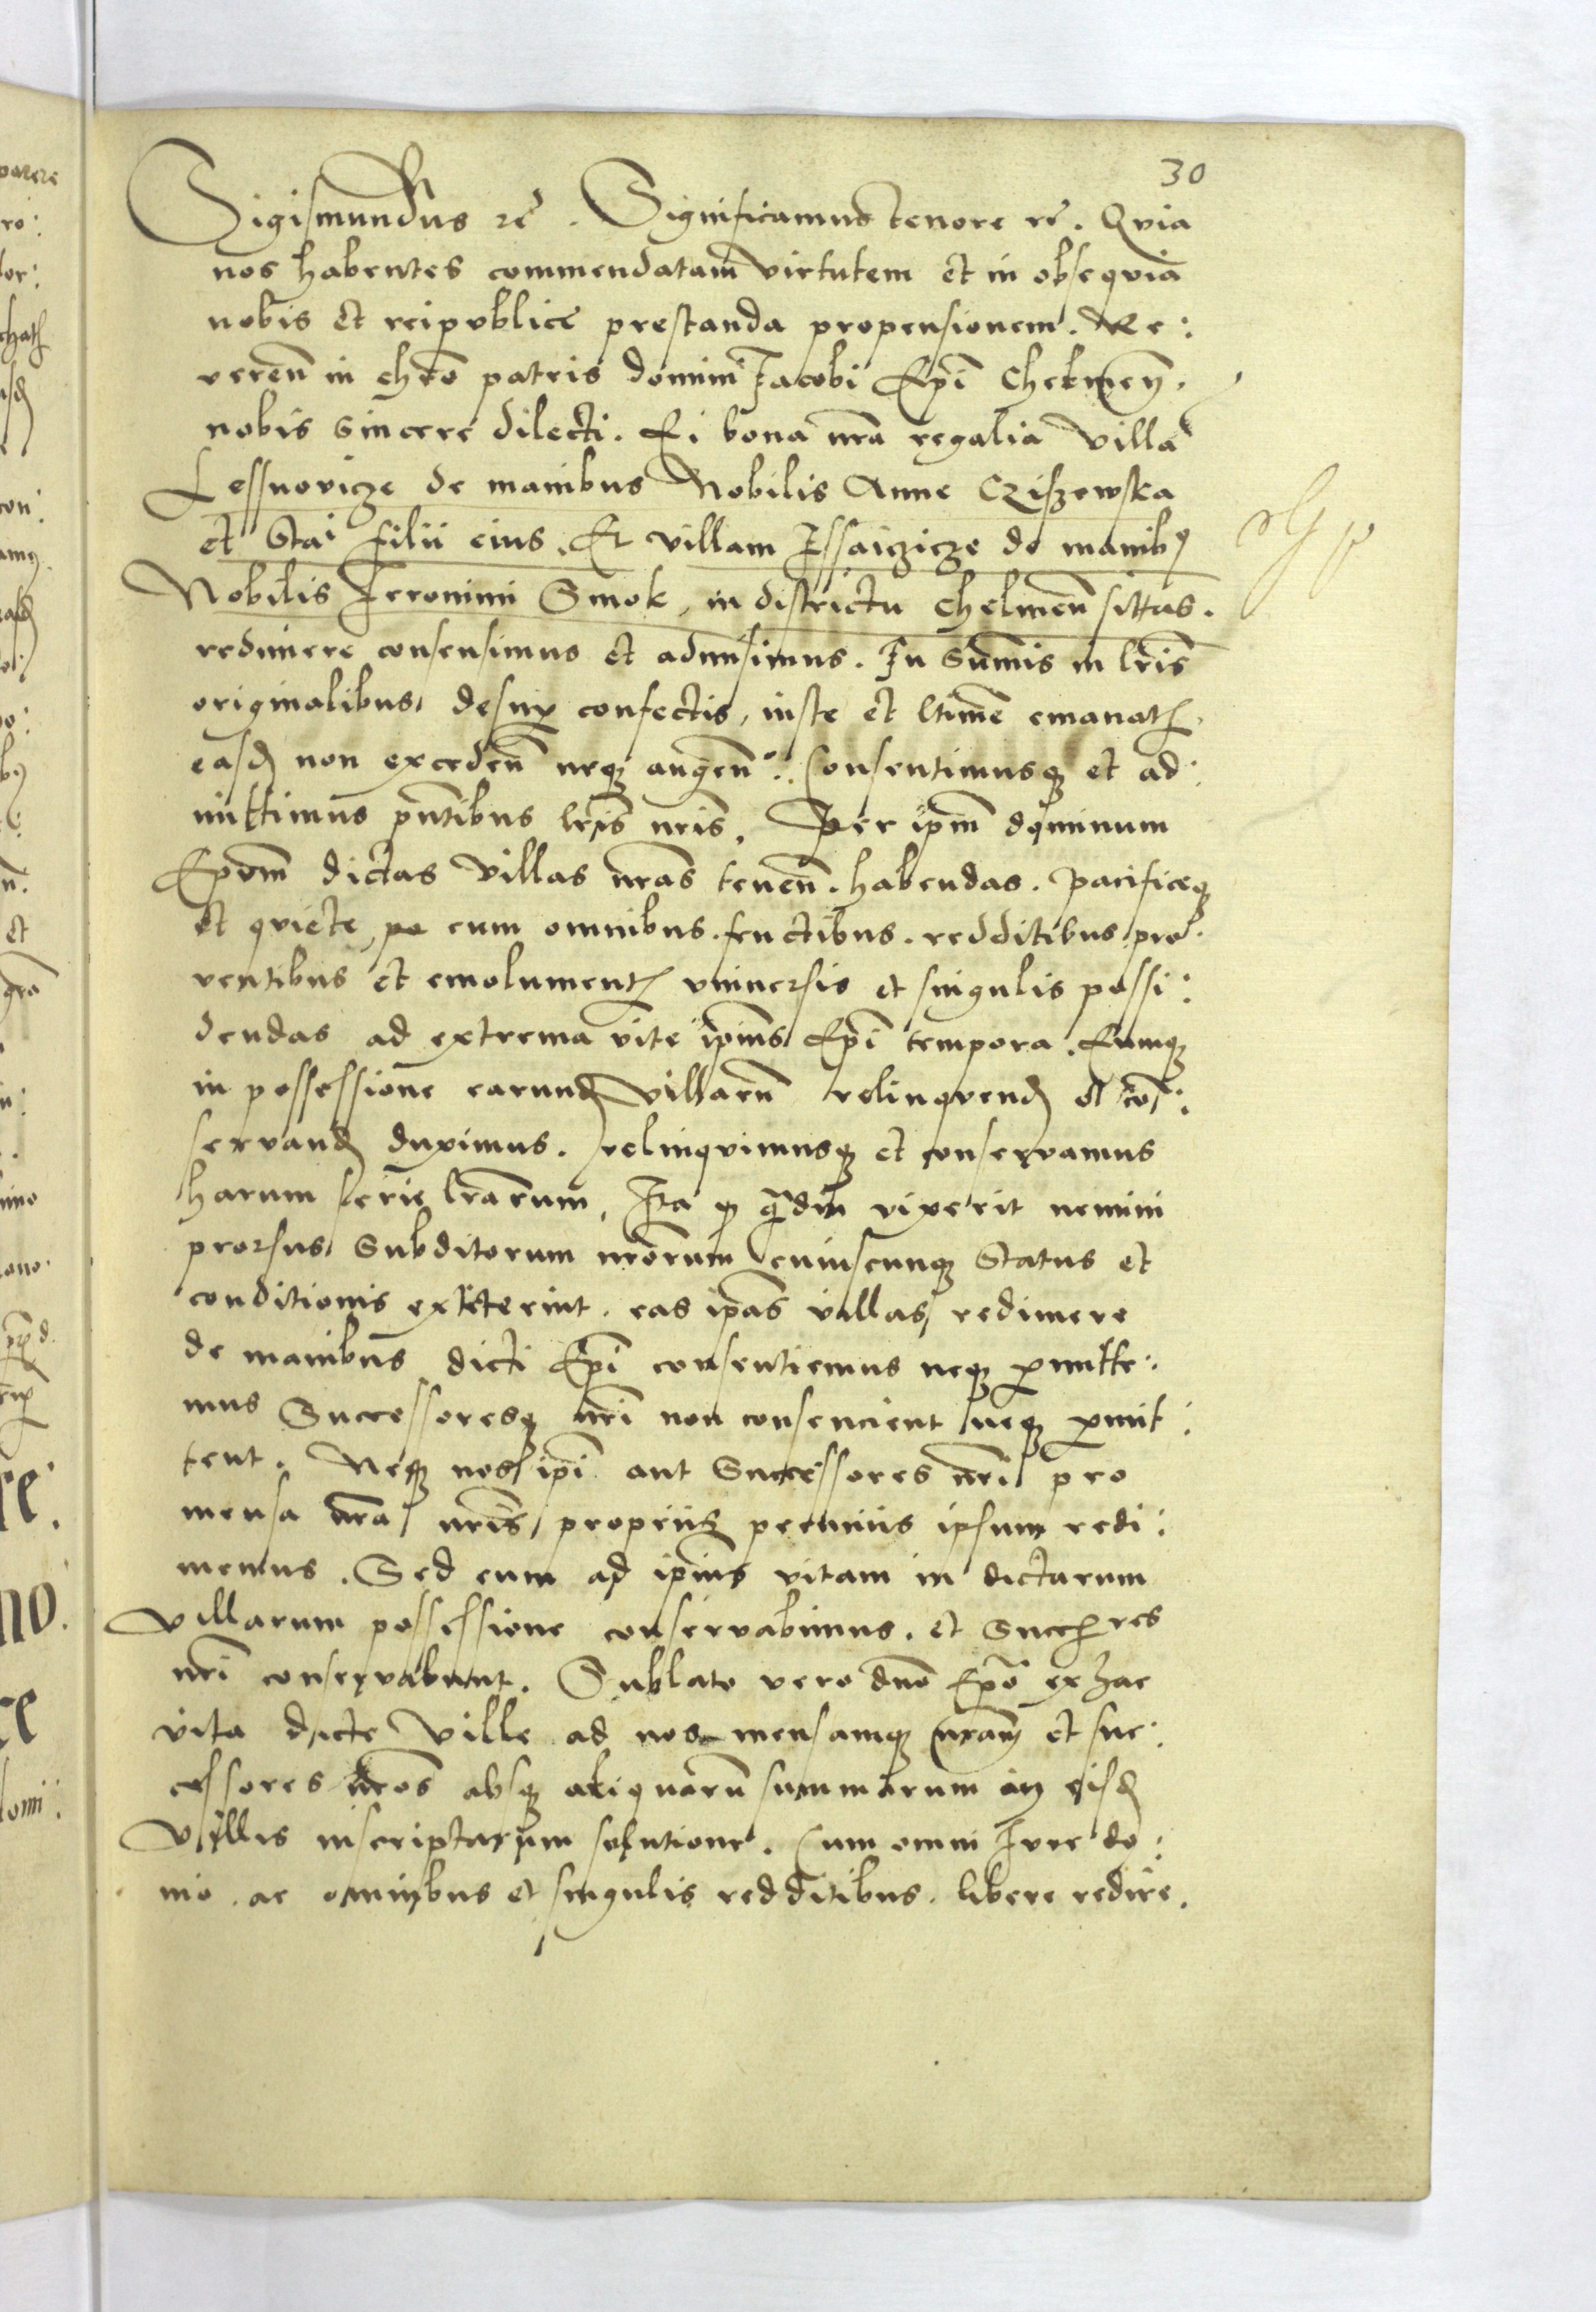 30
Sigismundus rē. Significamus tenore rē. Quia
nos habentes commendatam virtutem et in obsequia
nobis et reipublice prestanda propensionem. Re:
veren̄ in chrō patris domini Jacobi Ep̄i Chelmen̄.
nobis sincere dilecti. Ei bona nr̄a regalia villā
Lessnovicze de manibus Nobilis Anne Cziszewska
et Stai filii eius. Et villam Jssaiczicze de manibȝ
Nobilis Jeronimi Smok, in districtu Chelmen̄ sittas.
redimere consensimus et admisimus. In Sum̄is in lr̄is
originalibus desup̱ confectis, iuste et ltime emanatꝭ.
easdꝭ non exceden̄ neqꝫ augen̄: Consentimusqꝫ et ad:
mittimus pn̄tibus lr̄is nr̄is. Per ip̄m dominum
Ep̄om dictas villas nr̄as tenen̄. habendas. pacificeqꝫ
et quiete, cum omnibus. fructibus. redditibus pro:
ventibus et emolumentꝭ universis et singulis possi:
dendas ad extrema vite ip̄ius Ep̄i tempora. Eumqꝫ
in possessione earundꝭ villarū relinquendꝭ et cō:
servandꝭ duximus. relinquimusqꝫ et conservamus
harum serie lr̄arum. Ita ꝙ q̄diu vixerit nemini
prorsus Subditorum nr̄orum cuiuscunqꝫ Status et
conditionis extiterint. eas ip̄as villas redimere
de manibus dicti Ep̄i consentiemus neqꝫ ꝑmitte:
mus Successoresqꝫ nr̄i non consencient neqꝫ ꝑmit:
tent. Neqꝫ nos ip̄i aut Successores nr̄i pro
mensa nr̄a nr̄is propriis pecuniis ipsum redi:
memus. Sed eum ad ip̄ius vitam in dictarum
villarum possessione conservabimus. et Succꝭres
nr̄i conservabunt. Sublato vero dn̄o Ep̄o ex hac
vita dicte ville ad nos mensamqꝫ nr̄am et suc:
cessores nr̄os absqꝫ aliquarū summarum in eisdꝭ
villis inscriptarum solutione. Cum omni Jure do:
nio. ac omnibus et singulis redditibus. libere redire.